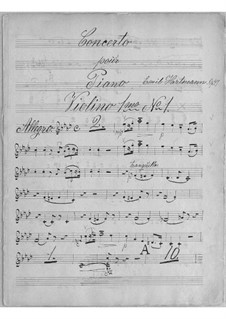 Concerto
Piano Emil Hartmann
Violino 1mo No. 1
Allegro 2
1. A 10